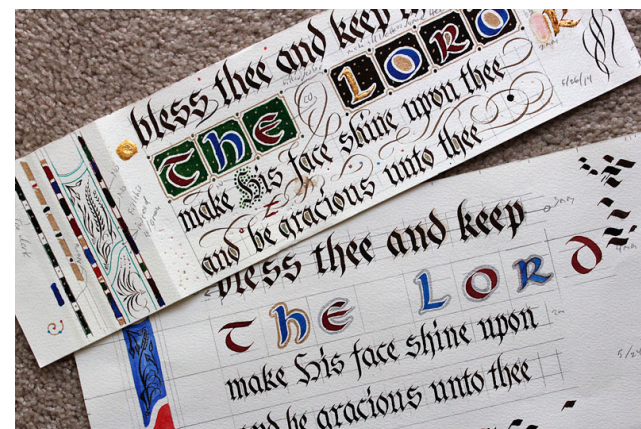 bless thee and keep
THE LORD
make His face shine upon thee
and be gracious unto thee
5/26/14
bless thee and keep
THE LORD
make His face shine upon
and be gracious unto thee
5/24